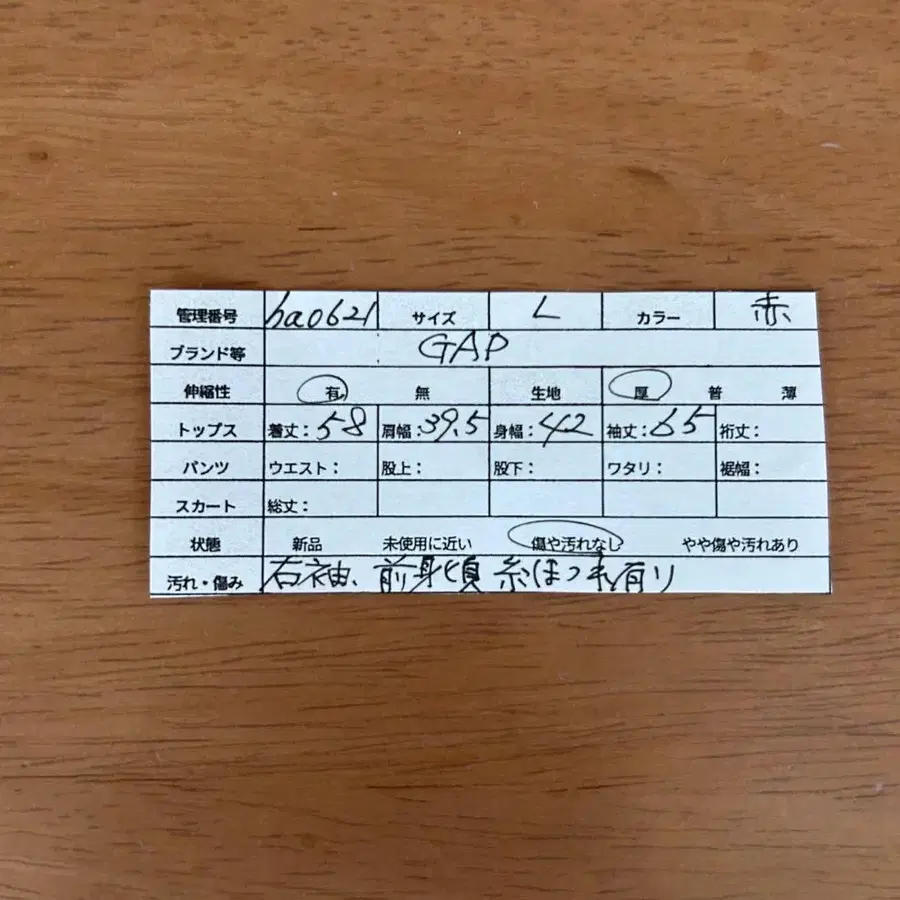 管理番号 ha0621 サイズ L カラー 赤
ブランド等 GAP
伸縮性 有 無 生地 厚 普 薄
トップス 着丈:58 肩幅:39.5 身幅:42 袖丈:65 裄丈:
パンツ ウエスト: 股上: 股下: ワタリ: 裾幅:
スカート 総丈:
状態 新品 未使用に近い 傷や汚れなし やや傷や汚れあり
汚れ・傷み 右袖、前身頃 糸ほつれ有り